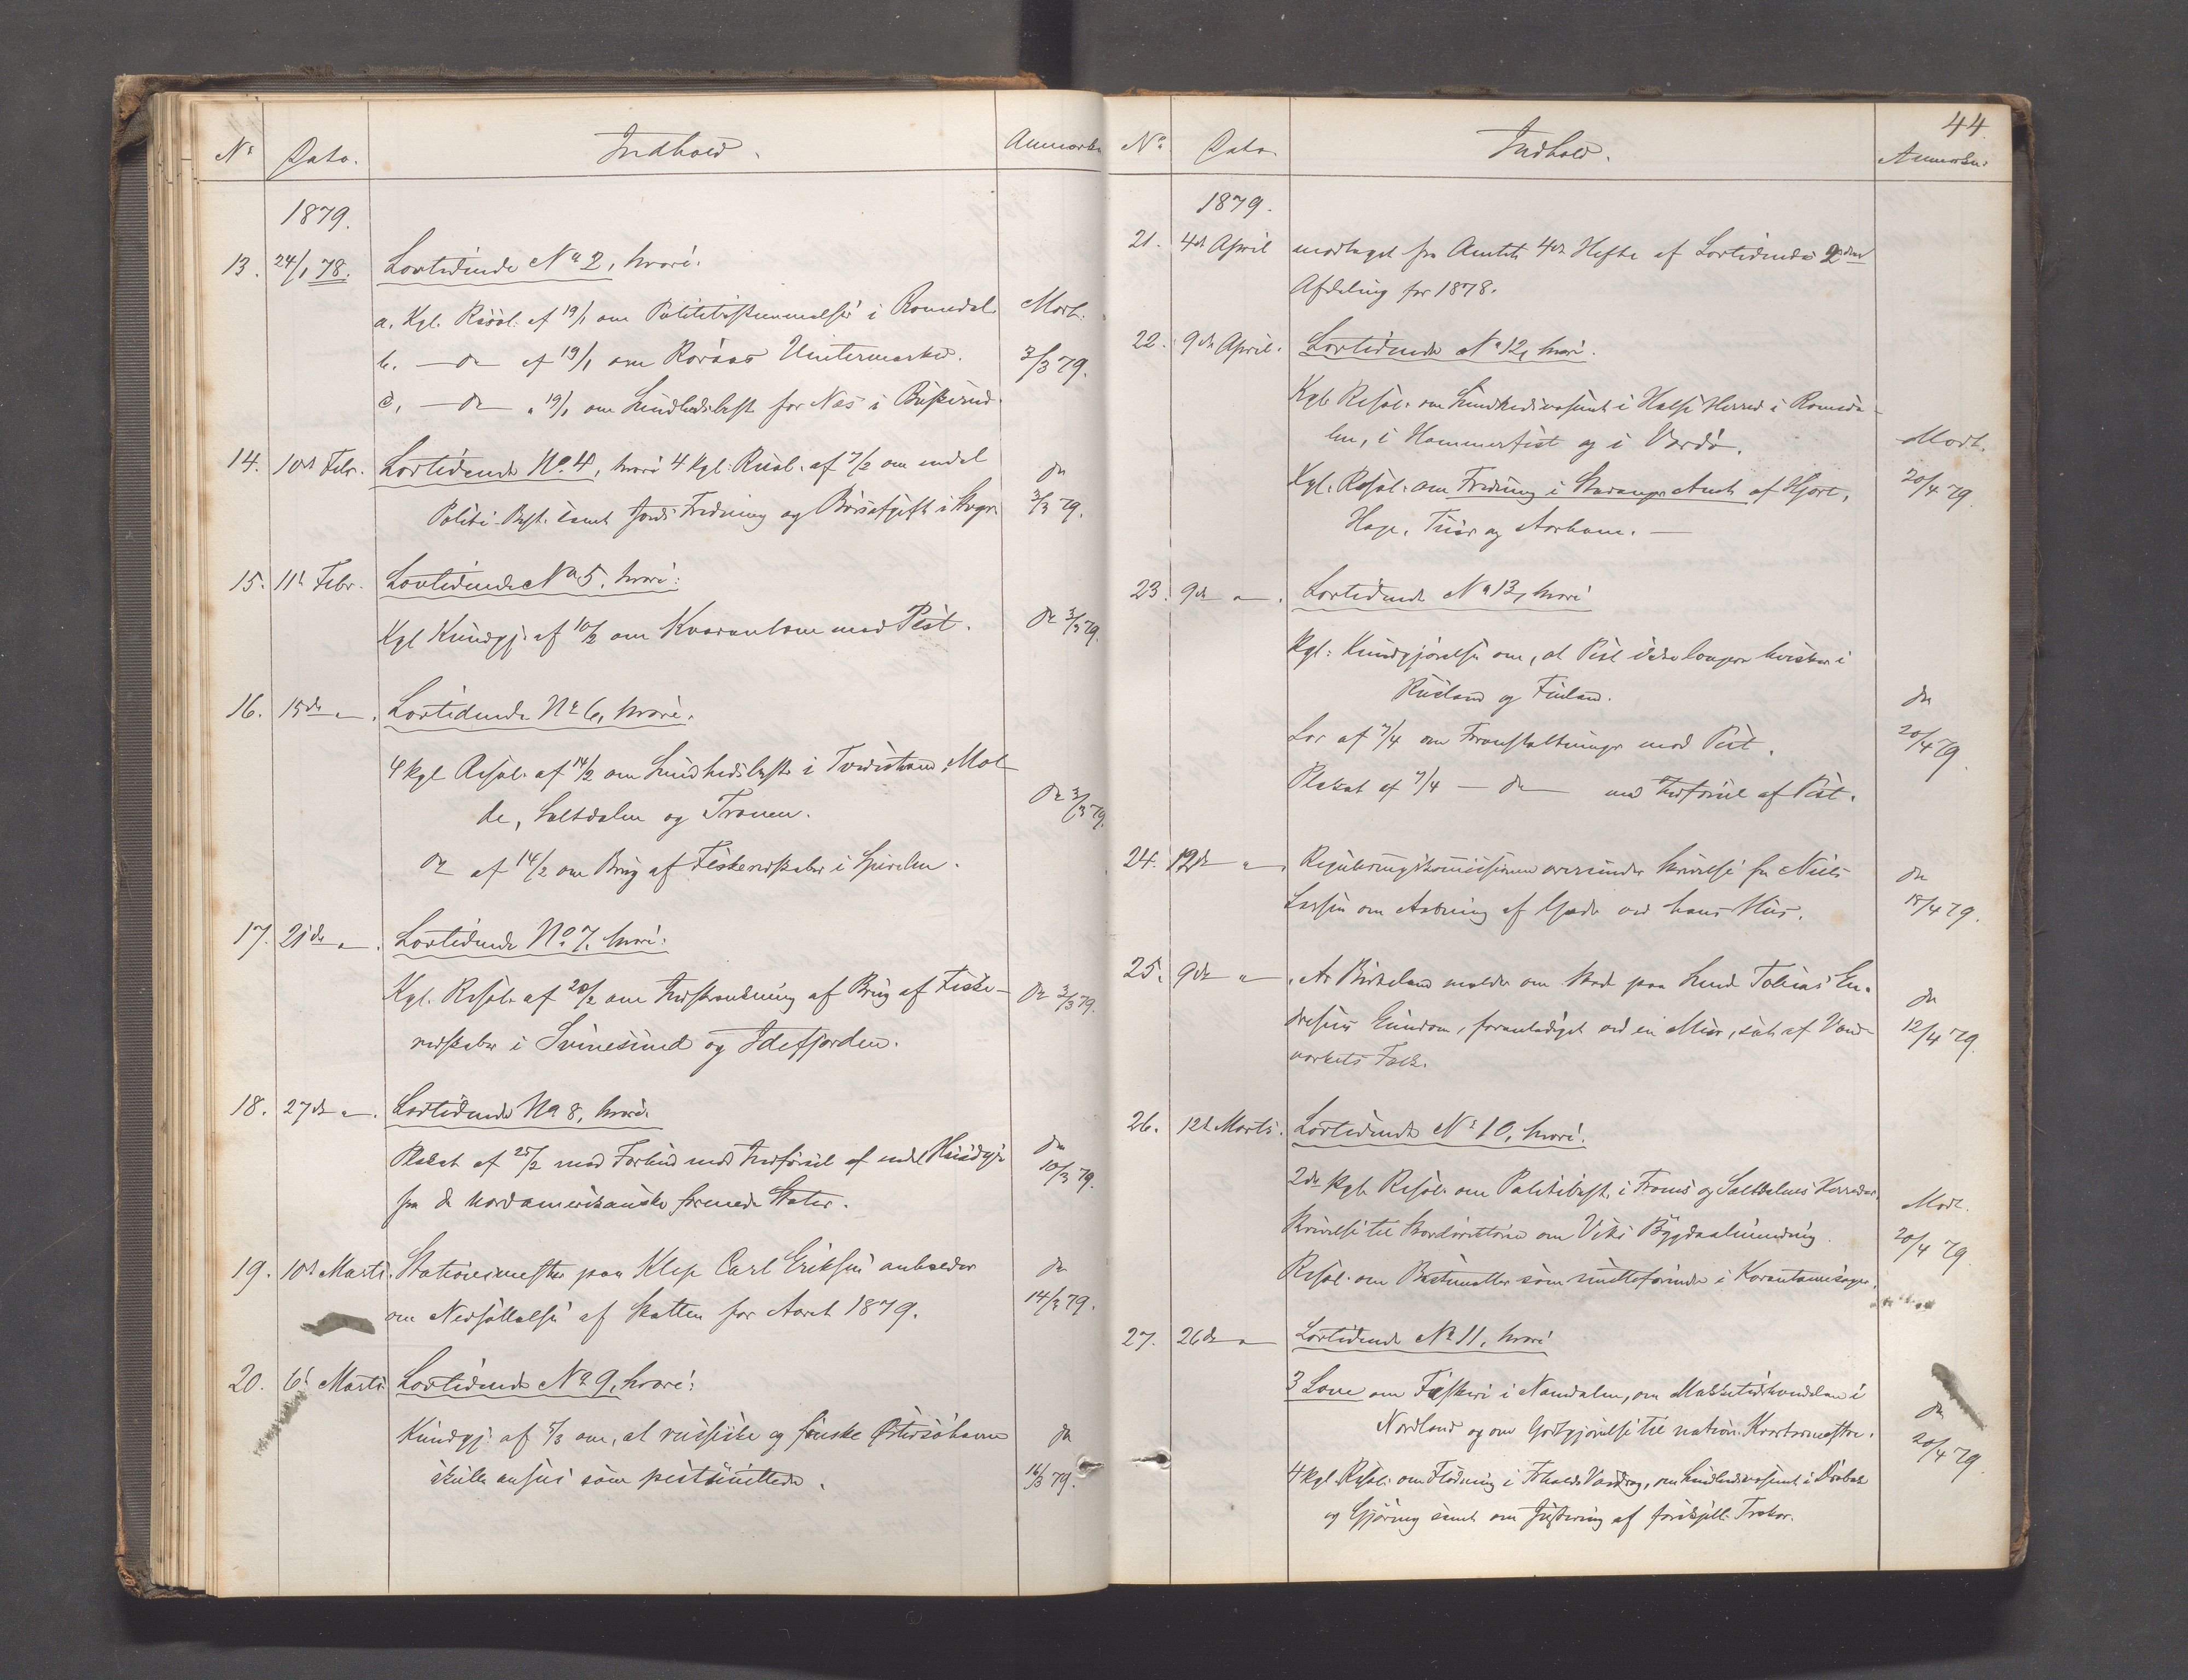 No Dato. Indhold. Anmærkn.
1879.
13. 24/1 78. Lovtidende No 2, hvori:
a. Kgl. Resol. af 19/1 om Politibestemmelser i Romsdal. Modt.
b. — do — af 19/1 om Røraas Vintermarked. 3/3 79.
c. — do — " 19/1 om Sundhedsbest. for Næs i Buskerud.
14. 10de Febr. Lovtidende No. 4, hvori 4 kgl. Resol. af 7/2 om endel do
Politi-Best. samt Fredning og Børsafgift i 3/3 79.
15. 11te Febr. Lovtidende No 5, hvori:
Kgl Kundgj. af 10/2 om Kvarantæne mod Pest. do 3/3 79.
16. 15de — " — . Lovtidende No 6, hvori:
4 kgl Resol. af 14/2 om Sundhedsbest. i Tvedestrand, Mol-
de, Saltdalen og Tranen. do 3/3 79.
do af 14/2 om Brug af Fiskeredskaber i
17. 21de — " — . Lovtidende No 7, hvori:
Kgl. Resol. af 20/2 om Indskrænkning af Brug af Fiske- do 3/3 79.
redskaber i Svinesund og Idefjorden.
18. 27de — " — . Lovtidende No 8, hvori.
Plakat af 25/2 med Forbud mod Indførsel af endel Husdyr do
fra de nordamerikanske forenede Stater. 10/3 79.
19. 10de Marts. Stationsmester paa Klep Carl Eriksen anholder do
om Nedsættelse af Skatten for Aaret 1879. 14/3 79.
20. 6te Marts Lovtidende No 9, hvori:
Kundgj. af 5/3 om, at russiske og finske Østersøhavne do
skulle ansees som pestsmittede. 16/3 79.
44.
No Dato. Indhold. Anmærkn.
1879.
21. 4de April modtaget fra Amtet 4de Hefte af Lovtidendes 2den
Afdeling for 1878.
22. 9de April. Lovtidende No 12, hvori.
Kgl. Resol. om Sundhedsvæsenet i Halse Herred i Romsda-
len, i Hammerfest og i Vardø. Modt.
Kgl. Resol. om Fredning i Stavanger Amt af Hjort, 20/4 79.
Hare, Tiur og Aarhane. —
23. 9de — " — . Lovtidende No 13, hvori
Kgl. Kundgjørelse om, at Pest ikke længere hersker i
Rusland og Finland. do
Lov af 7/4 om Foranstaltninger mod Pest. 20/4 79.
Plakat af 7/4 — do — mod Indførsel af Pest.
24. 12de — " — . Reguleringskommissionen oversender Skrivelse fra Niels do
Larsen om Aabning af Gade ved hans Hus. 18/4 79.
25. 9de — " — . A. Birkeland melder om Skade paa Lensmd. Tobias En-
dresens Eiendom, foranlediget ved en Mur, sat af Vand- do
værkets Folk. 12/4 79.
26. 12te Marts. Lovtidende No 10, hvori.
2de kgl. Resol. om Politibest. i Tromsø og Saltdalens Herreder.
Skrivelse til om Viks Bygdealmenning. Modt.
Resol. om som smitteførende i Karantænesager. 20/4 79.
27. 26de — " — Lovtidende No 11, hvori
3 Love om Fiskeri i Namdalen, om i
Nordland og om Godtgjørelse til nation. Kvartermestre. do
4 kgl. Resol. om Flødning i Vasdrag, om Sundhedsvæsenet i Drøbak 20/4 79.
og Gjøring samt om Justering af forskjell. Træker.